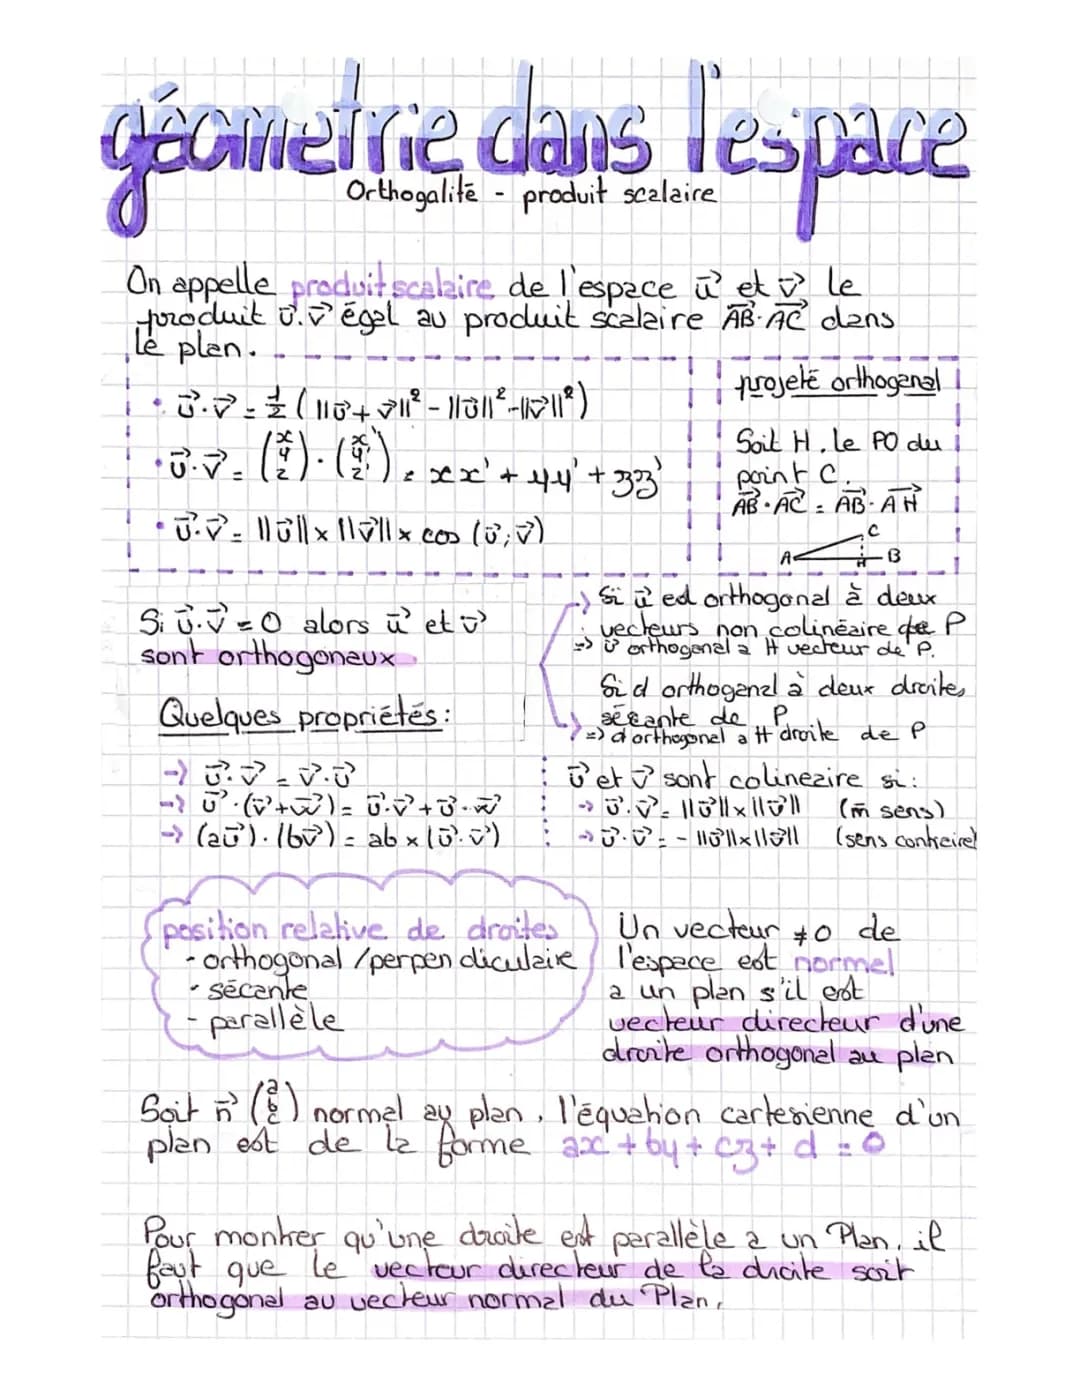 géométrie dans l'espace
Orthogalité - produit scalaire
On appelle produit scalaire de l'espace u⃗ et v⃗ le
produit u⃗.v⃗ égal au produit scalaire AB⃗·AC⃗ dans
le plan.
• u⃗.v⃗ = 1/2 (||u⃗+v⃗||² - ||u⃗||² - ||v⃗||²)
• u⃗.v⃗ = (x y z) · (x' y' z') = xx' + yy' + zz'
• u⃗.v⃗ = ||u⃗|| x ||v⃗|| x cos (u⃗;v⃗)
projeté orthogonal
Soit H, le PO du
point C.
AB⃗·AC⃗ = AB⃗·AH⃗
C
A H B
Si u⃗.v⃗ = 0 alors u⃗ et v⃗
sont orthogonaux
-> Si u⃗ est orthogonal à deux
vecteurs non colinéaire de P
=> u⃗ orthogonal a tt vecteur de P.
Si d orthogonal à deux droites
sécante de P
-> => d orthogonal a tt droite de P
Quelques propriétés :
-> u⃗.v⃗ = v⃗.u⃗
-> u⃗.(v⃗+w⃗) = u⃗.v⃗ + u⃗.w⃗
-> (au⃗).(bv⃗) = ab x (u⃗.v⃗)
u⃗ et v⃗ sont colineaire si :
-> u⃗.v⃗ = ||u⃗|| x ||v⃗|| (m̄ sens)
-> u⃗.v⃗ = - ||u⃗|| x ||v⃗|| (sens contraire)
position relative de droites
- orthogonal / perpendiculaire
- sécante
- parallèle
Un vecteur ≠0 de
l'espace est normal
a un plan s'il est
vecteur directeur d'une
droite orthogonal au plan
Soit n⃗ (a b c) normal au plan, l'équation cartesienne d'un
plan est de la forme ax + by + cz + d = 0
Pour montrer qu'une droite est parallèle a un Plan, il
faut que le vecteur directeur de la droite soit
orthogonal au vecteur normal du Plan.